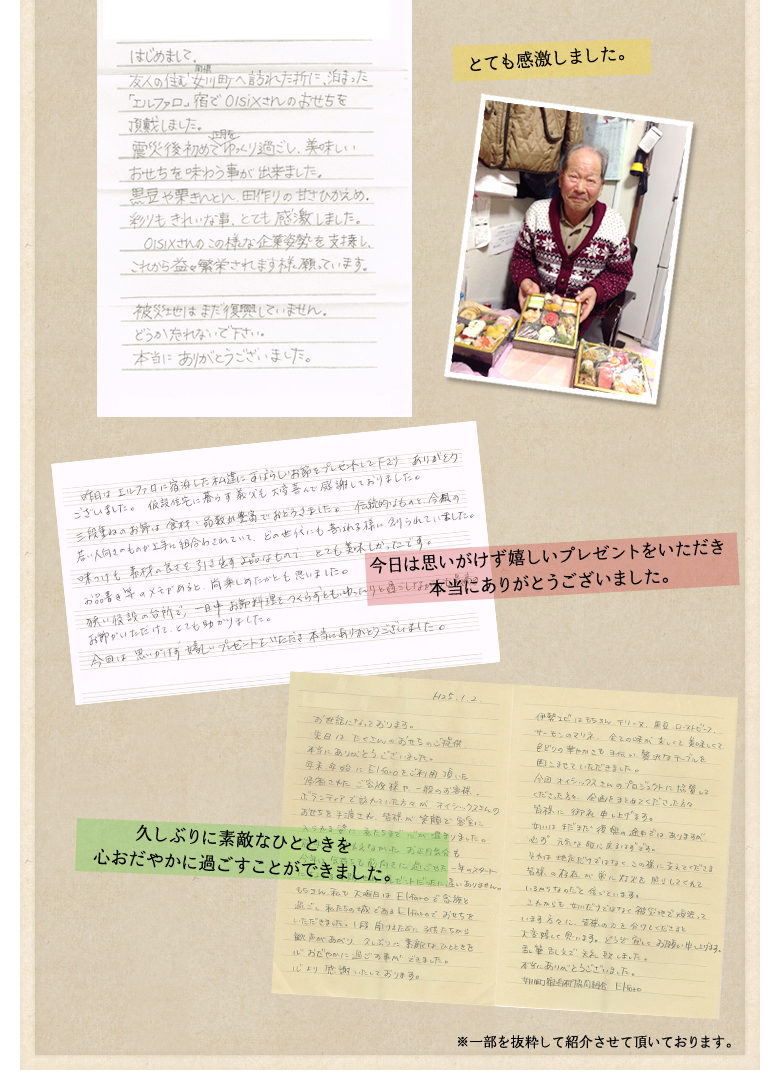 はじめまして。
友人の住む女川町へ訪れた折に、泊まった
「エルファロ」宿でOisixさんのおせちを
頂戴しました。
震災後初めて正月をゆっくり過ごし、美味しい
おせちを味わう事が出来ました。
黒豆や栗きんとん、田作りの甘さひかえめ、
彩りもきれいな事、とても感激しました。
Oisixさんのこの様な企業姿勢を支援し、
これから益々繁栄されます様、願っています。
被災地はまだ復興していません。
どうか忘れないで下さい。
本当にありがとうございました。
とても感激しました。
昨日はエルファロに宿泊した私達にすばらしいお節をプレゼントして下さり ありがとう
ございました。仮設住宅に暮らす義父も大変喜んで感謝しておりました。
三段重ねのお節は食材、品数が豊富でおどろきました。伝統的なものと今風の
若い人向きのものが上手に組合わされていて、どの世代にも喜ばれる様に作られていました。
味つけも素材の良さを引き出す上品なもので とても美味しかったです。
お品書き等のメモがあると、尚楽しめたかとも思いました。
狭い仮設の台所で、一日中お節料理をつくらずとも、ゆったりと過ごしながら
お節がいただけて、とても助かりました。
今回は思いがけず嬉しいプレゼントをいただき本当にありがとうございました。
今日は思いがけず嬉しいプレゼントをいただき
本当にありがとうございました。
H25.1.2.
お世話になっております。
先日はたくさんのおせちのご提供、
本当にありがとうございました。
年末年始にElfaroをご利用頂いた
帰省されたご家族様や一般のお客様、
ボランティアで訪れていた方々がオイシックスさんの
おせちを手渡され、皆様が笑顔で客室に
入られる姿に、私たちまで心が温まりました。
お正月気分も
一年のスタート
違いありません。
もちろん、私も大晦日はElfaroで家族と
過ごし、私たちの城であるElfaroでおせちを
いただきました。1段開けるたびに子供たちから
歓声があがり、久しぶりに素敵なひとときを
心おだやかに過ごす事ができました。
心より感謝いたしております。
久しぶりに素敵なひとときを
心おだやかに過ごすことができました。
伊勢エビはもちろん、テリーヌ、黒豆、ローストビーフ、
サーモンのマリネ、全ての味が楽しくて美味しくて
色どりの華やかさも手伝い、贅沢なテーブルを
囲こませていただきました。
今回オイシックスさんのプロジェクトに協賛して
くださった方々、企画をまとめてくださった方々
皆様に御礼申し上げます。
女川はまだまだ復興の途中ではありますが
必ず元気な町に戻るはずです。
それは地元だけではなく、この様に支えてくださる
皆様の存在が常に灯火を照らしてくれて
いるからなのだと信じています。
これからも女川だけではなく被災地で頑張って
います方々に、皆様の力を分けてくださると
大変嬉しく思います。どうぞ宜しくお願い申し上げます。
乱筆乱文で失礼致しました。
本当にありがとうございました。
女川町宿泊村協同組合 Elfaro
※一部を抜粋して紹介させて頂いております。